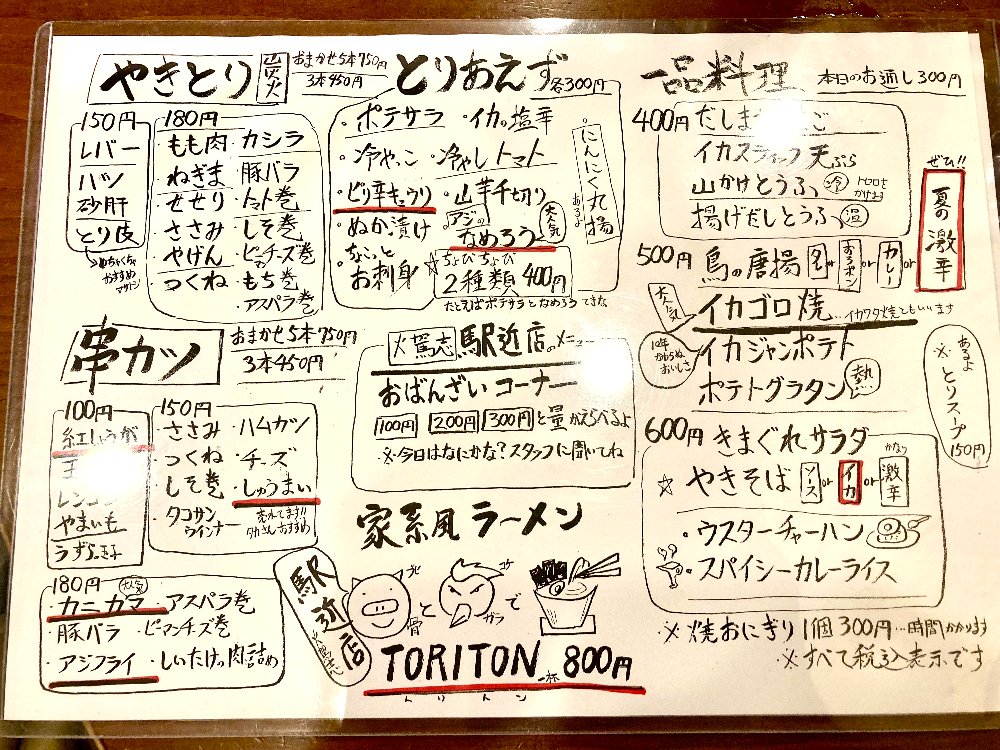 やきとり
おまかせ5本750円
3本450円
150円
レバー
ハツ
砂肝
とり皮
めちゃくちゃ
おすすめ
180円
もも肉
ねぎま
せせり
ささみ
やげん
つくね
カシラ
豚バラ
トマト巻
しそ巻
ピーマンチーズ巻
もち巻
アスパラ巻
とりあえず
各300円
・ポテサラ
・イカの塩辛
・冷やっこ
・冷やしトマト
・ピリ辛きゅうり
・山芋千切り
・ぬか漬け
アジの
なめろう
大人気
・ちょこっと
お刺身
にんにく丸揚
あるよ
☆ちょびちょび
2種類 400円
たとえばポテサラとなめろうできな
一品料理
本日のお通し300円
400円
イカスティック天ぷら
山かけとうふ 冷
トロロを
かけたよ
揚げだしとうふ 温
500円
鳥の唐揚
タレ or おろポン or カレー or
ぜひ!!
夏の激辛
大人気
イカゴロ焼
...イカワタ焼ともいいます
10年
かわらぬ
おいしさ
イカジャンポテト
ポテトグラタン
熱
あるよ
※とりスープ
150円
600円
きまぐれサラダ
☆やきそば ソース or イカ or 激辛
かなり
・ウスターチャーハン
・スパイシーカレーライス
※焼おにぎり 1個300円...時間かかります
※すべて税込表示です
串カツ
おまかせ5本750円
3本450円
100円
紅しょうが
レンコン
やまいも
うずら玉子
150円
・ささみ
・つくね
・しそ巻
・タコサン
ウインナー
・ハムカツ
・チーズ
・しゅうまい
売れてます!!
タカさんおすすめ
180円
大人気
・カニカマ
・アスパラ巻
・豚バラ
・ピーマンチーズ巻
・アジフライ
・しいたけの肉詰め
駅近店のメニュー
おばんざいコーナー
100円 200円 300円 と量がえらべるよ
※今日はなにかな?スタッフに聞いてね
家系風ラーメン
駅近店
骨
と
ガラ
で
TORITON 一杯 800円
トリトン